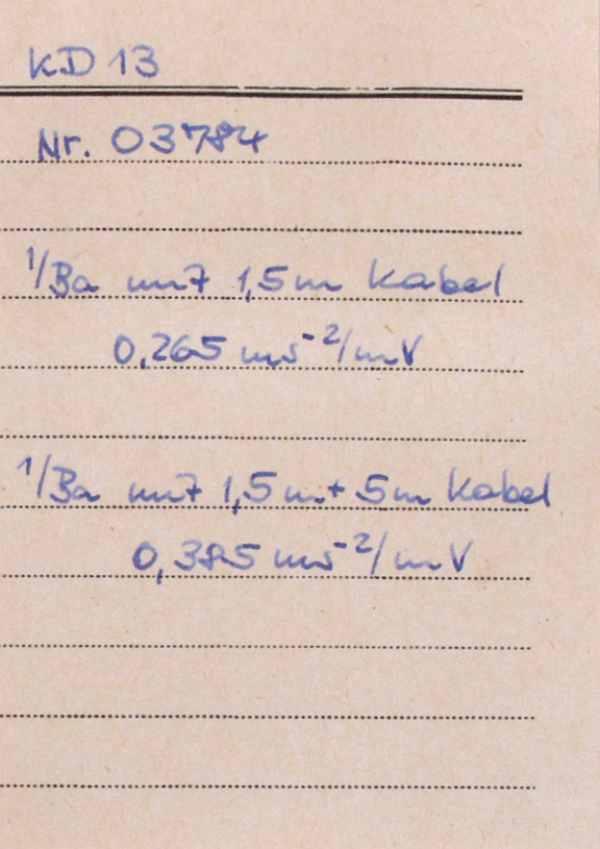 KD 13
Nr. 03784
1/Ba mit 1,5m Kabel
0,265 ms⁻²/mV
1/Ba mit 1,5m + 5m Kabel
0,385 ms⁻²/mV